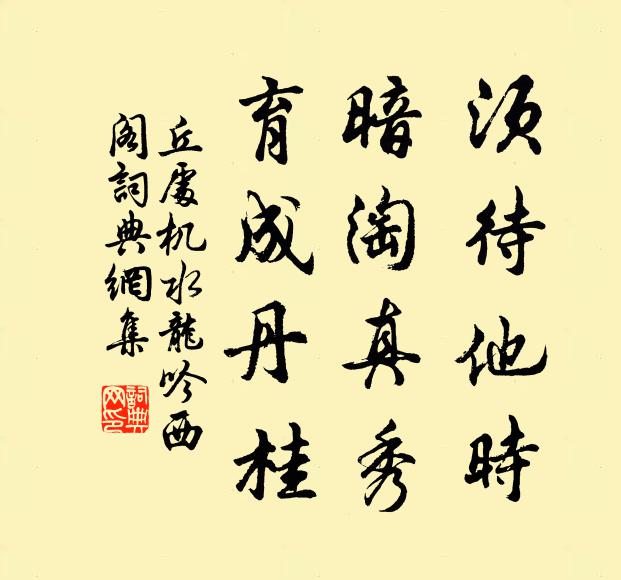 須待他時
暗淘真秀
育成丹桂
丘處机水龍吟西
閣詞典網集
詞典網印